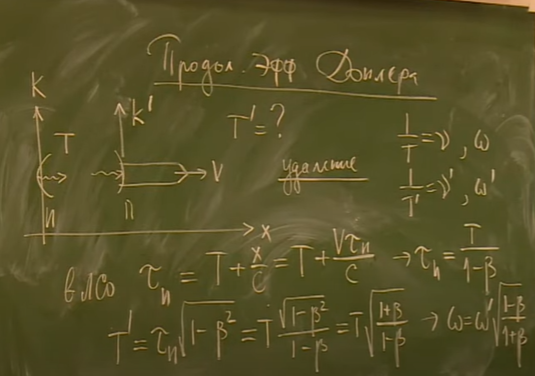 Продол. Эфф Доплера
K
K'
T' = ?
1/T = ν, ω
T
V
удаление
1/T' = ν', ω'
И
П
x
в ЛСО τₙ = T + x/c = T + Vτₙ/c → τₙ = T/(1-β)
T' = τₙ√(1-β²) = T √(1-β²)/(1-β) = T√((1+β)/(1-β)) → ω = ω'√((1-β)/(1+β))